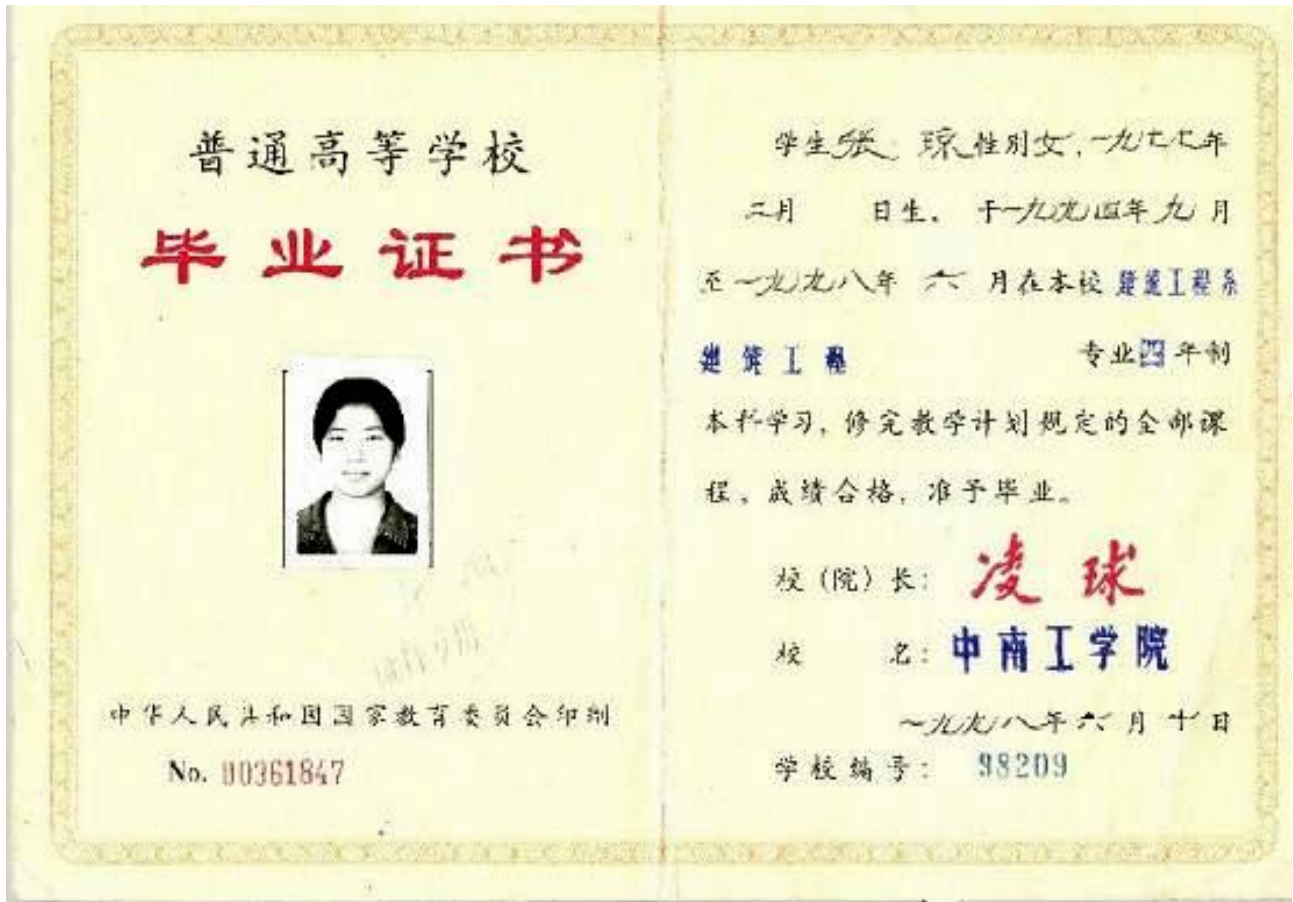 普通高等学校
毕业证书
中华人民共和国国家教育委员会印制
No. 00361847
学生张 琼性别女,一九七七年
二月 日生, 于一九九四年九月
至一九九八年 六 月在本校 建筑工程系
建筑工程 专业四年制
本科学习, 修完教学计划规定的全部课
程, 成绩合格, 准予毕业。
校(院)长: 凌球
校 名: 中南工学院
一九九八年六月十日
学校编号: 98209